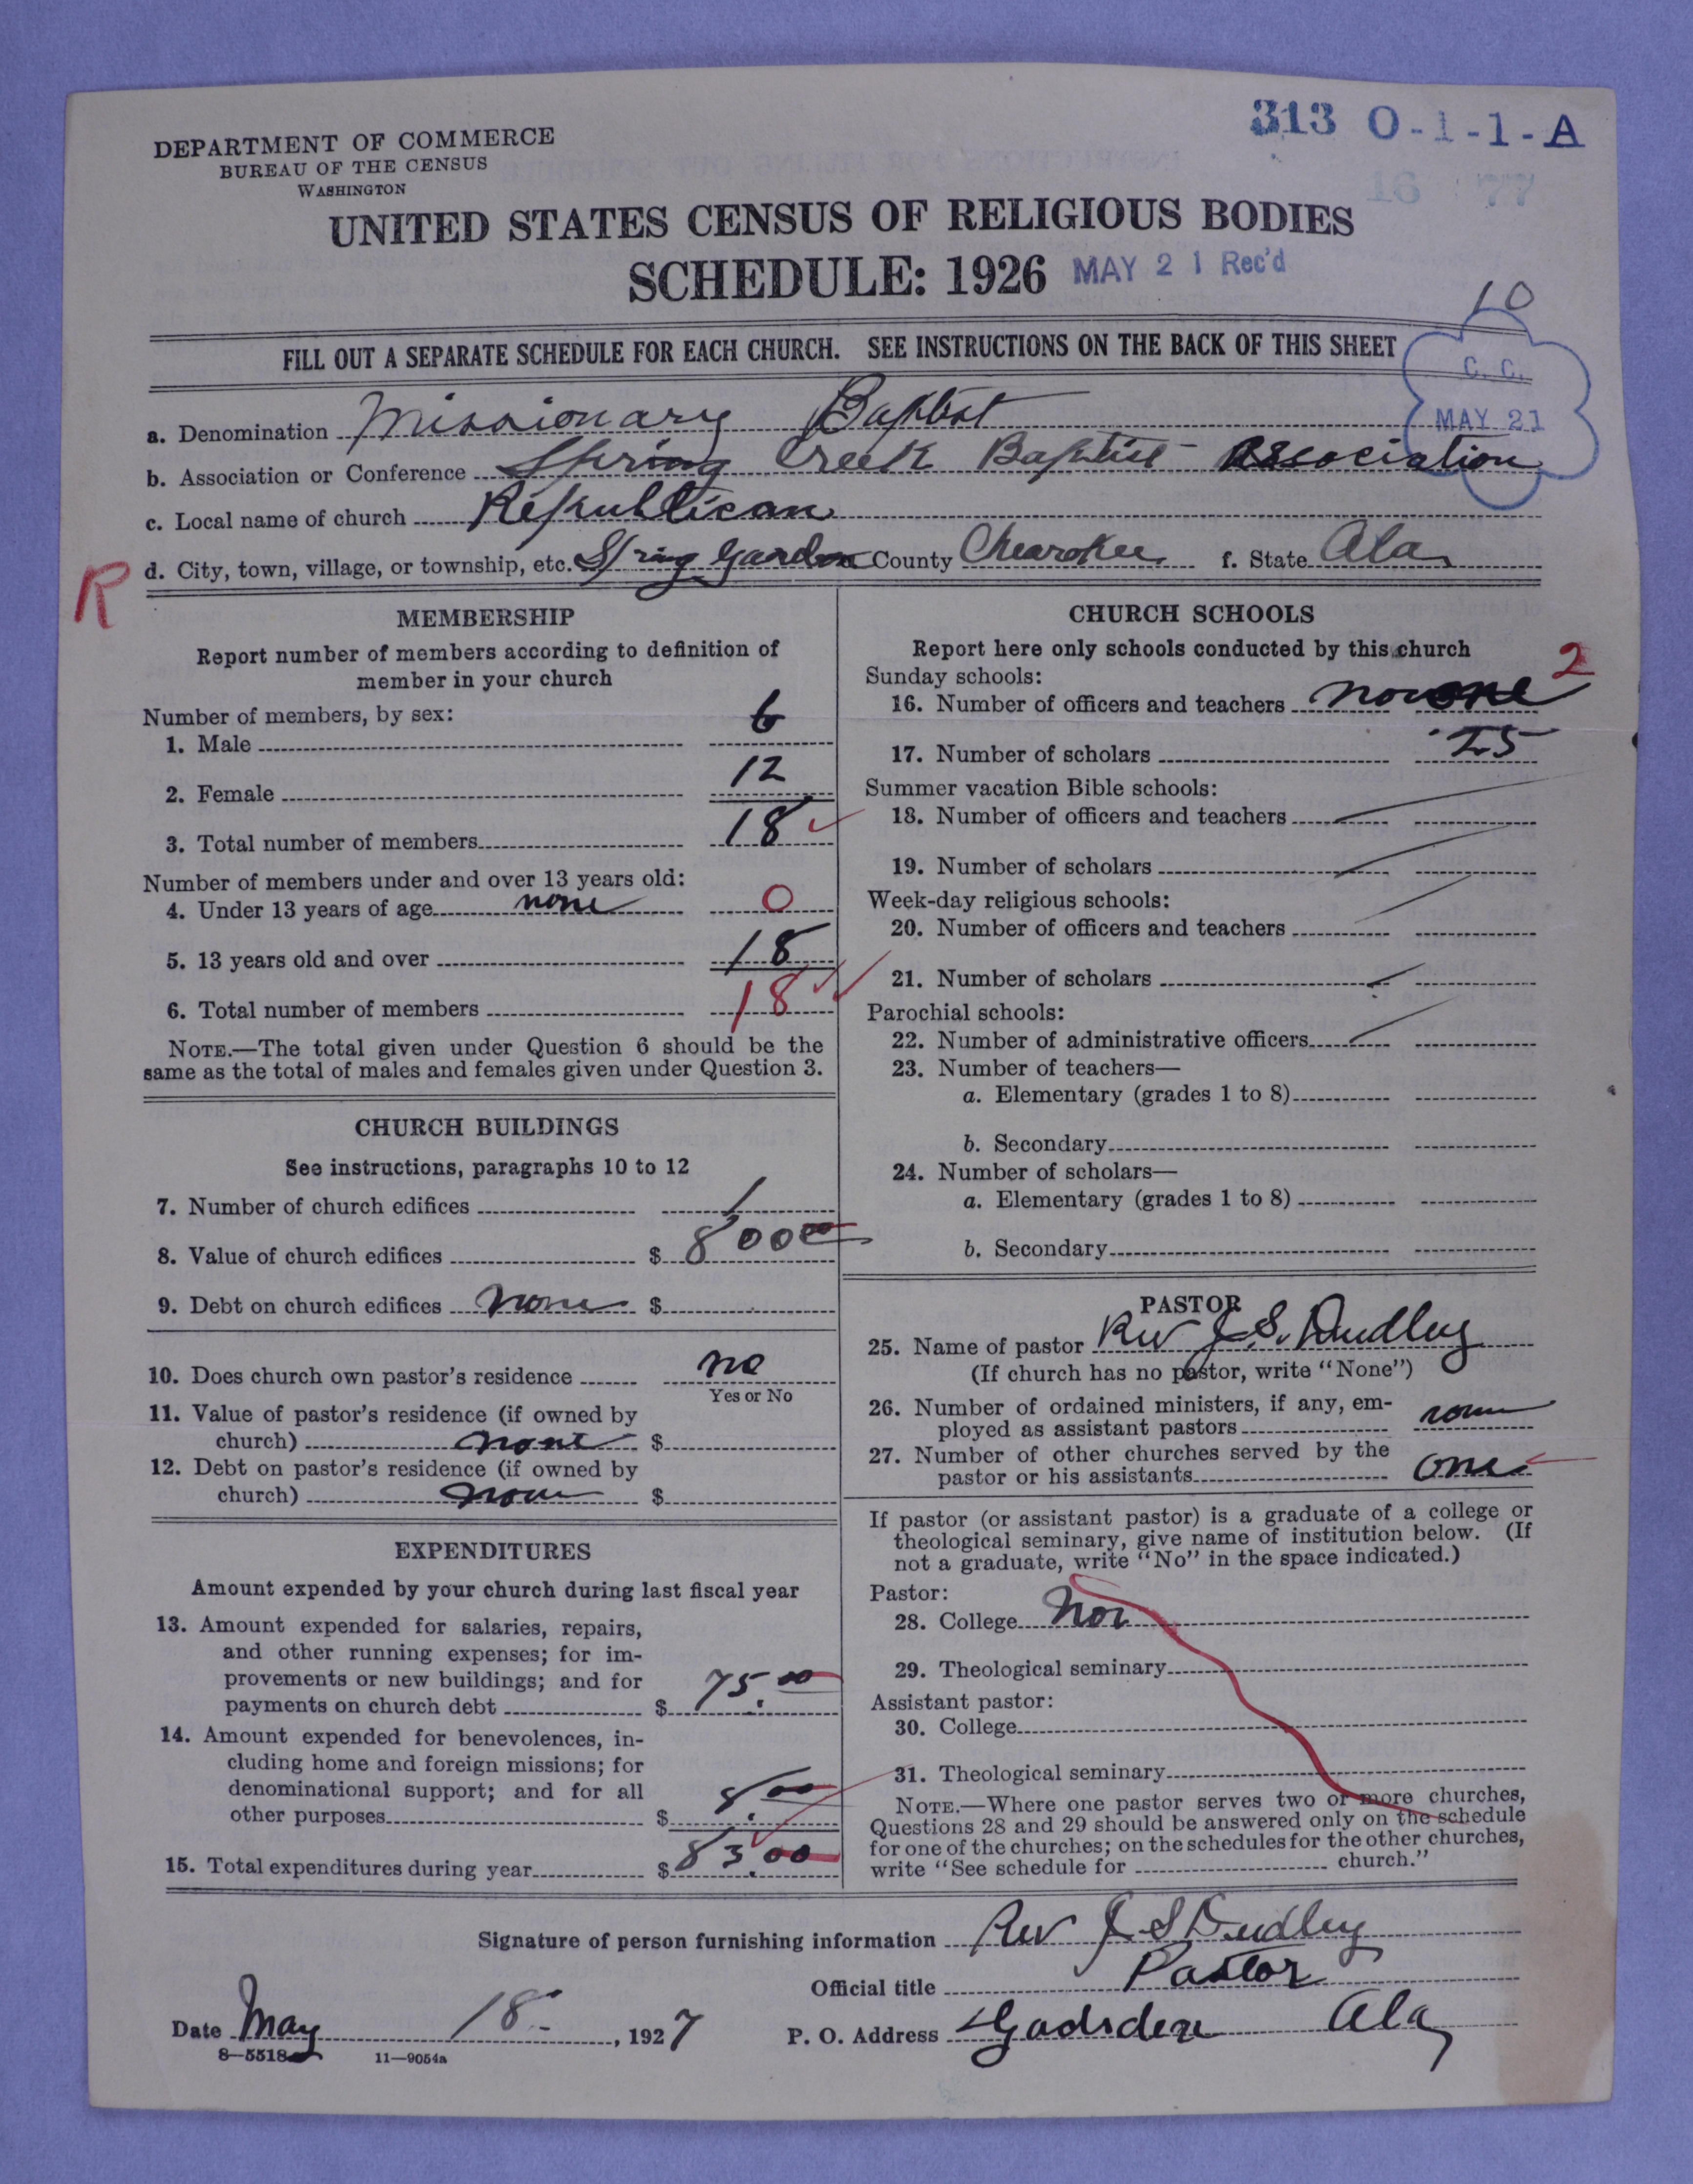 313 0-1-1-A
DEPARTMENT OF COMMERCE
BUREAU OF THE CENSUS
WASHINGTON
16 77
UNITED STATES CENSUS OF RELIGIOUS BODIES
SCHEDULE: 1926 MAY 21 Rec'd
10
FILL OUT A SEPARATE SCHEDULE FOR EACH CHURCH. SEE INSTRUCTIONS ON THE BACK OF THIS SHEET
C. C.
MAY 21
a. Denomination Missionary Baptist
b. Association or Conference Spring Creek Baptist Association
c. Local name of church Republican
d. City, town, village, or township, etc. Spring Garden County Chearokee f. State Ala
R
MEMBERSHIP
Report number of members according to definition of
member in your church
Number of members, by sex:
1. Male 6
2. Female 12
3. Total number of members 18
Number of members under and over 13 years old:
4. Under 13 years of age none 0
5. 13 years old and over 18
6. Total number of members 18
NOTE.—The total given under Question 6 should be the
same as the total of males and females given under Question 3.
CHURCH BUILDINGS
See instructions, paragraphs 10 to 12
7. Number of church edifices 1
8. Value of church edifices $ 800 00
9. Debt on church edifices none $
10. Does church own pastor's residence no
Yes or No
11. Value of pastor's residence (if owned by
church) none $
12. Debt on pastor's residence (if owned by
church) none $
EXPENDITURES
Amount expended by your church during last fiscal year
13. Amount expended for salaries, repairs,
and other running expenses; for im-
provements or new buildings; and for
payments on church debt $ 75.00
14. Amount expended for benevolences, in-
cluding home and foreign missions; for
denominational support; and for all
other purposes $ 8.00
15. Total expenditures during year $ 83.00
CHURCH SCHOOLS
Report here only schools conducted by this church
Sunday schools: 2
16. Number of officers and teachers
17. Number of scholars 25
Summer vacation Bible schools:
18. Number of officers and teachers
19. Number of scholars
Week-day religious schools:
20. Number of officers and teachers
21. Number of scholars
Parochial schools:
22. Number of administrative officers
23. Number of teachers—
a. Elementary (grades 1 to 8)
b. Secondary
24. Number of scholars—
a. Elementary (grades 1 to 8)
b. Secondary
PASTOR
25. Name of pastor Rev J. S. Dudley
(If church has no pastor, write "None")
26. Number of ordained ministers, if any, em-
ployed as assistant pastors none
27. Number of other churches served by the
pastor or his assistants one
If pastor (or assistant pastor) is a graduate of a college or
theological seminary, give name of institution below. (If
not a graduate, write "No" in the space indicated.)
Pastor:
28. College
29. Theological seminary
Assistant pastor:
30. College
31. Theological seminary
NOTE.—Where one pastor serves two or more churches,
Questions 28 and 29 should be answered only on the schedule
for one of the churches; on the schedules for the other churches,
write "See schedule for church."
Signature of person furnishing information Rev J S Dudley
Official title Pastor
Date May 18- , 1927 P. O. Address Gadsden Ala
8-5518 11-9054a